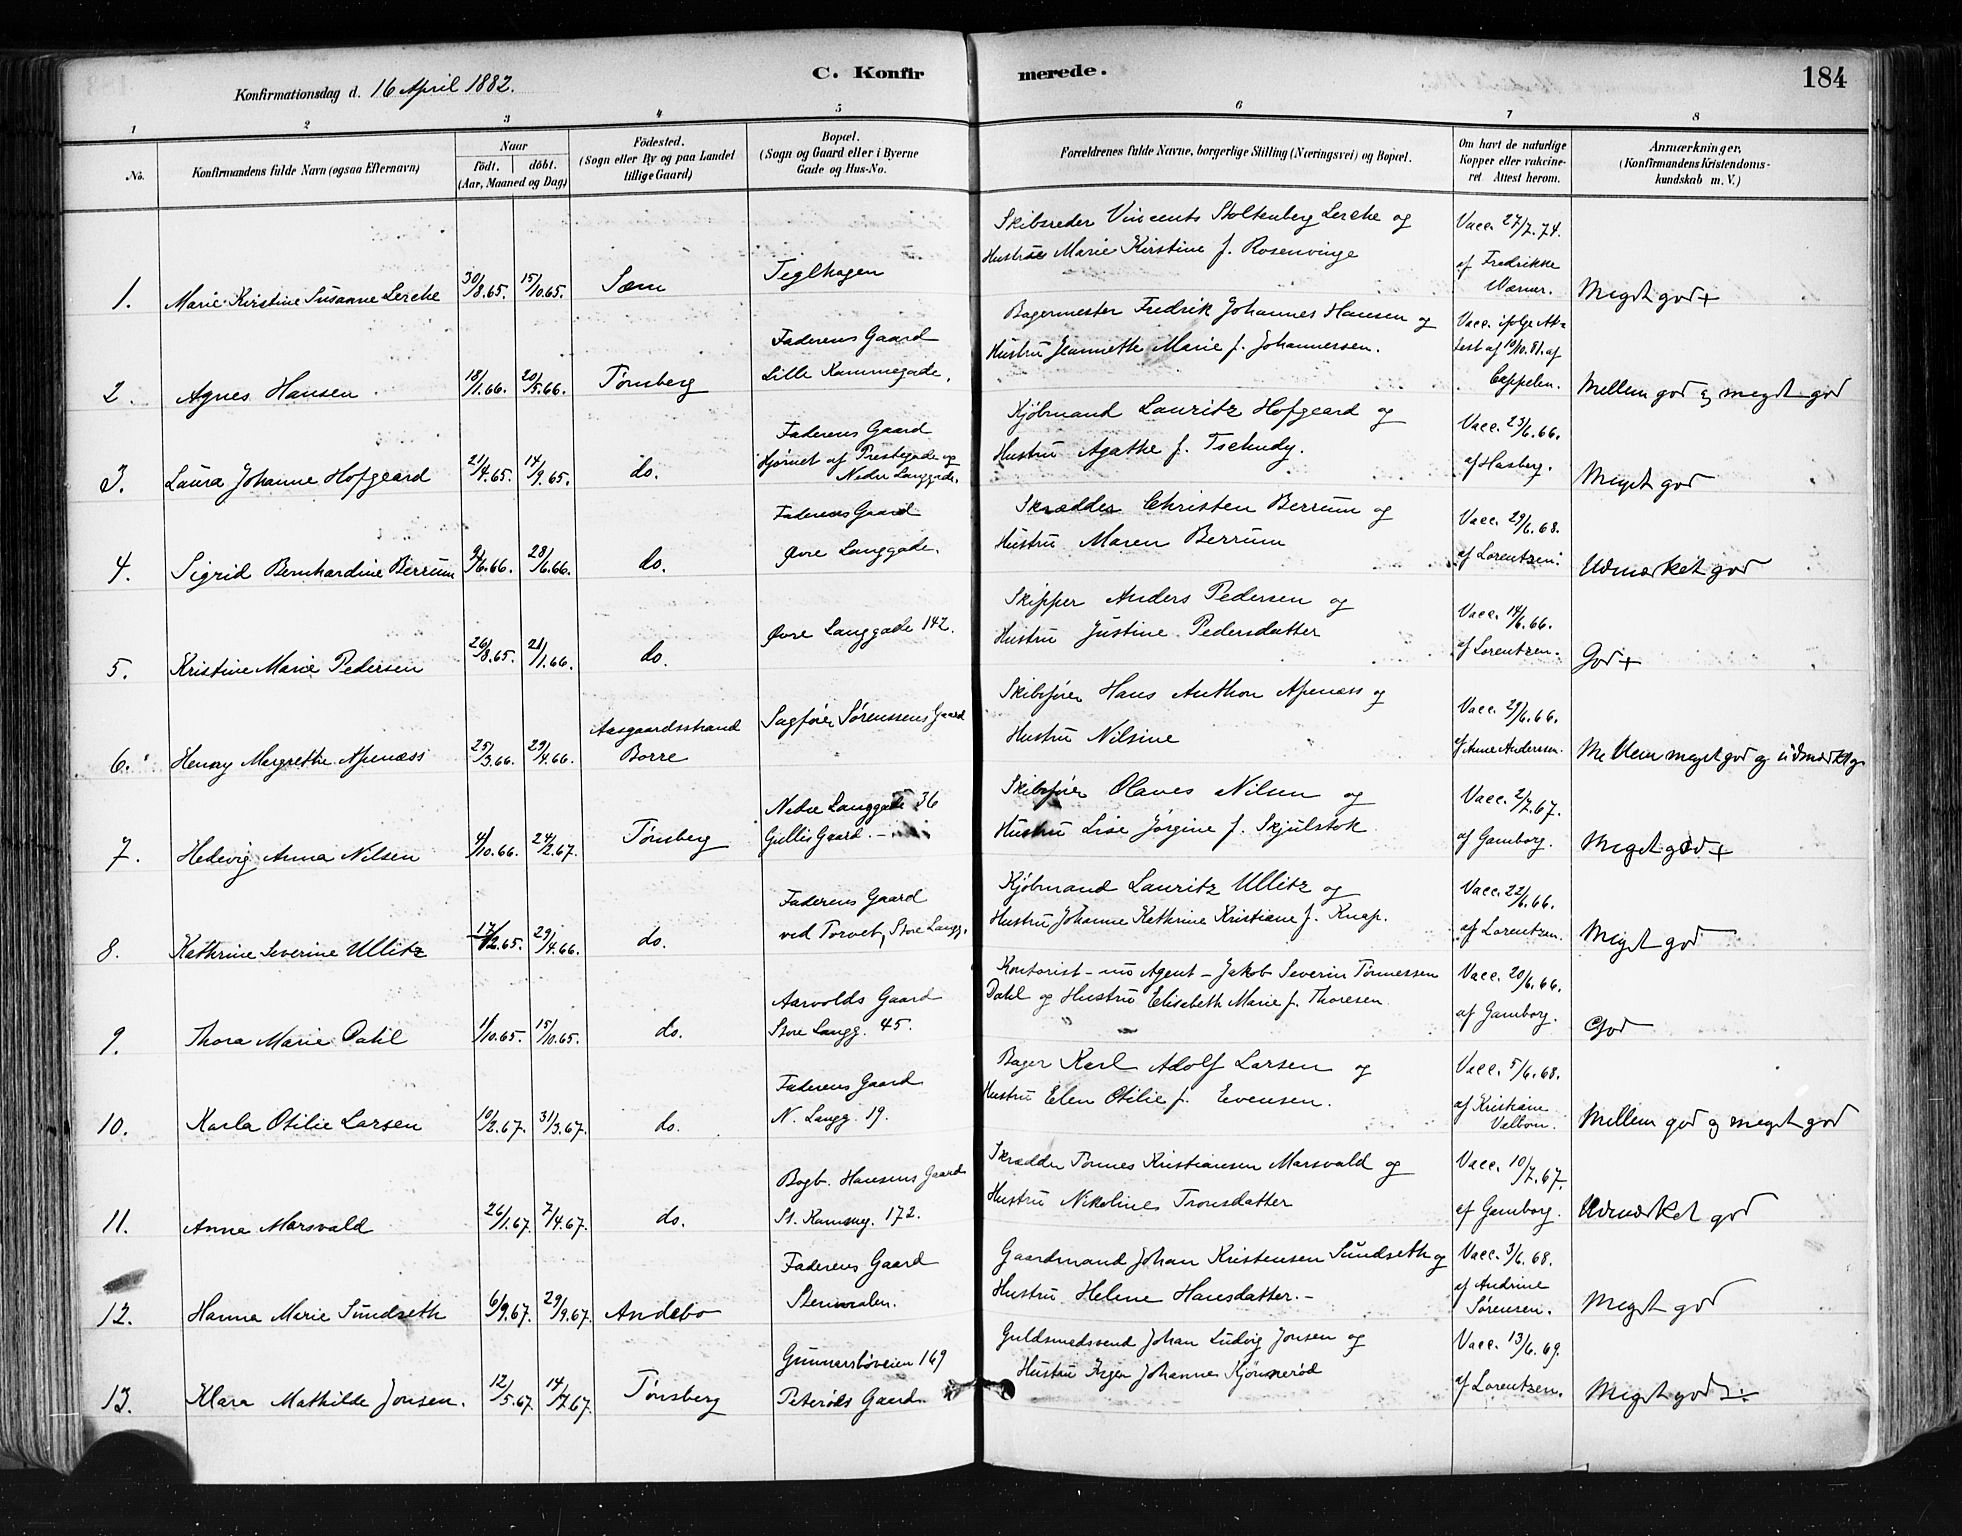 184
C. Konfirmerede.
Konfirmationsdag d. 16 April 1882.
1 2 3 4 5 6 7 8
No.
Konfirmandens fulde Navn (ogsaa Efternavn)
Naar
födt. döbt.
(Aar, Maaned og Dag)
Födested.
(Sogn eller By og paa Landet
tillige Gaard)
Bopæl.
(Sogn og Gaard eller i Byerne
Gade og Hus-No.
Forældrenes fulde Navne, borgerlige Stilling (Næringsvei) og Bopæl.
Om havt de naturlige
Kopper eller vakcine-
ret Attest herom.
Anmærkninger,
(Konfirmandens Kristendoms-
kundskab m. V.)
1. Marie Kirstine Susanne Lerche 30/8.65. 15/10.65. Sæm Teglhagen
Skibsreder Vincents Stoltenberg Lerche og
Hustrue Marie Kirstine f. Rosenvinge
Vacc. 27/7.74.
af Fredrikke
Wærner.
Meget god +
2. Agnes Hansen 18/1.66. 20/5.66. Tønsberg
Faderens Gaard
Lille Kammegade.
Bagermester Fredrik Johannes Hansen og
Hustru Jeannette Marie f. Johannessen.
Vacc. ifølge At-
test af 19/10.81. af
Cappelen.
Mellem god og meget god
3. Laura Johanne Hofgaard 21/4.65. 14/9.65. do.
Faderens Gaard
Hjørnet af Prestegade og
Nedre Langgade.
Kjøbmand Lauritz Hofgaard og
Hustru Agathe f. Tschudy.
Vacc. 23/6.66.
af Hasberg.
Meget god
4. Sigrid Bernhardine Berrum 9/6.66. 28/6.66. do.
Faderens Gaard
Øvre Langgade.
Skrædder Christen Berrum og
Hustru Maren Berrum
Vacc. 29/6.68.
af Lorentzen.
Udmærket god
5. Kristine Marie Pedersen 26/8.65. 21/1.66. do.
Øvre Langgade 142.
Skipper Anders Pedersen og
Hustru Justine Pedersdatter
Vacc. 14/6.66.
af Lorentzen.
God +
6. Henny Margrethe Apenæss 25/3.66. 29/4.66.
Aasgaardsstrand
Borre
Sagfører Sørenssens Gaard
Skibsfører Hans Anthon Apenæss og
Hustru Nilsine
Vacc. 29/6.66.
af Anne Andersen.
Mellem meget god og udmærket g
7. Hedevig Anna Nilsen 4/10.66. 24/2.67. Tønsberg
Nedre Langgade 36
Gullis Gaard. -
Skibsfører Olaves Nilsen og
Hustru Lise Jørgine f. Skjulstok
Vacc. 2/7.67.
af Gamborg.
Meget god +
8. Kathrine Severine Ullitz 17/12.65. 29/4.66. do.
Faderens Gaard
ved Torvet, Store Langg.
Kjøbmand Lauritz Ullitz og
Hustru Johanne Kathrine Kristiane f. Knap.
Vacc. 22/6.66.
af Lorentzen.
Meget god
9. Thora Marie Dahl 1/10.65. 15/10.65. do.
Aarvolds Gaard
Store Langg. 45.
Kontorist - nu Agent - Jakob Severin Tønnessen
Dahl og Hustru Elisabeth Marie f. Thoresen
Vacc. 20/6.66.
af Gamborg.
God
10. Karla Otilie Larsen 10/2.67. 31/3.67. do.
Faderens Gaard
N. Langg. 19.
Bager Karl Adolf Larsen og
Hustru Elen Otilie f. Evensen.
Vacc. 5/6.68.
af Kristiane
Mellem god og meget god
11. Anna Marsvald 26/1.67. 7/4.67. do.
Bogb. Hansens Gaard
St. Kammeg. 172.
Skrædder Tønnes Kristiansen Marsvald og
Hustru Nikoline Tronsdatter
Vacc. 10/7.67.
af Gamborg.
Udmærket god
12. Hanna Marie Sundseth 6/9.67. 29/9.67. Andebo
Faderens Gaard
Gaardmand Johan Kristensen Sundseth og
Hustru Helene Hansdatter. -
Vacc. 3/6.68.
af Andrine
Sørensen.
Meget god
13. Klara Mathilde Jonsen. 12/5.67. 14/7.67. Tønsberg
Gunnarsbøveien 169
Peterøds Gaard
Guldsmedsvend Johan Ludvig Jonsen og
Hustru Inger Johanne Kjønnerød
Vacc. 13/6.69.
af Lorentzen.
Meget god